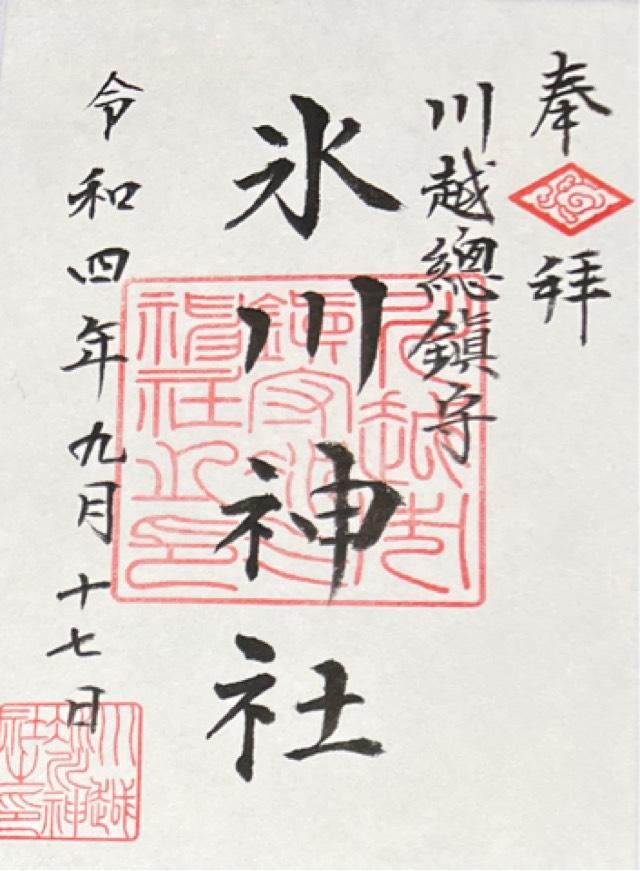 奉拝
川越總鎮守
氷川神社
令和四年九月十七日